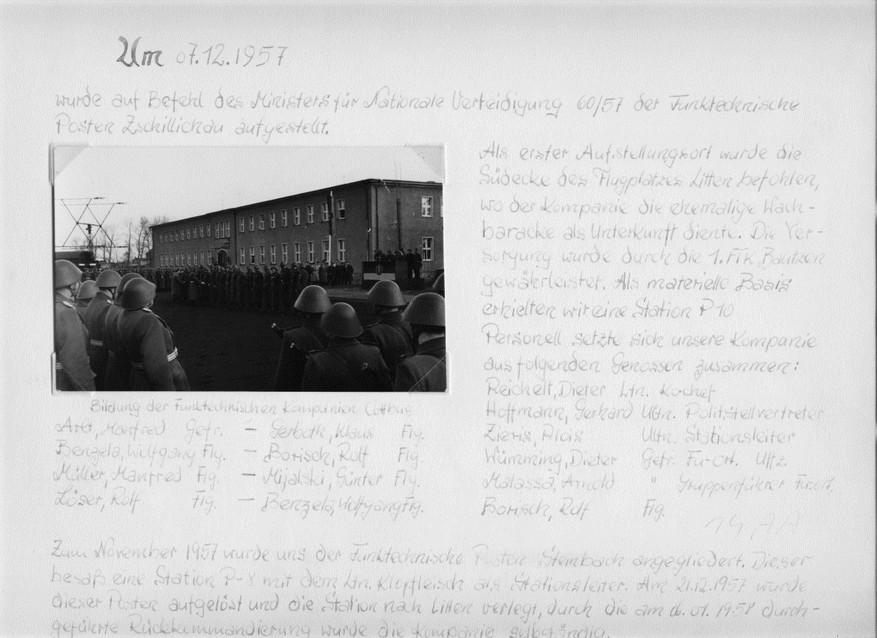 Am 07.12.1957
wurde auf Befehl des Ministers für Nationale Verteidigung 60/57 der Funktechnische
Posten Zschillichau aufgestellt.
Als erster Aufstellungsort wurde die
Südecke des Flugplatzes Litten befohlen,
wo der Kompanie die ehemalige Wach-
baracke als Unterkunft diente. Die Ver-
sorgung wurde durch die 1. FTK Bautzen
gewährleistet. Als materielle Basis
erhielten wir eine Station P 10
Personell setzte sich unsere Kompanie
aus folgenden Genossen zusammen:
Reichelt, Dieter Ltn. Kochef
Hoffmann, Gerhard Ultn. Politstellvertreter
Zieris, Alois Ultn. Stationsleiter
Wümming, Dieter Gefr. Fu-Ort. Uffz.
Malassa, Arnold " Gruppenführer Funort.
Borisch, Rolf Flg.
Bildung der Funktechnischen Kompanien Cottbus
Manfred Gefr. – Klaus Flg.
Benzela, Wolfgang Flg. – Borisch, Rolf Flg.
Müller, Manfred Flg. – Mijalski, Günter Flg.
Löser, Rolf Flg. – Benzela, Wolfgang Flg.
Zum November 1957 wurde uns der Funktechnische Posten Steinbach angegliedert. Dieser
besaß eine Station P-8 mit dem Ltn. Klopfleisch als Stationsleiter. Am 21.12.1957 wurde
dieser Posten aufgelöst und die Station nach Litten verlegt, durch die am 01.1958 durch-
geführte Rückkommandierung wurde die Kompanie selbständig.